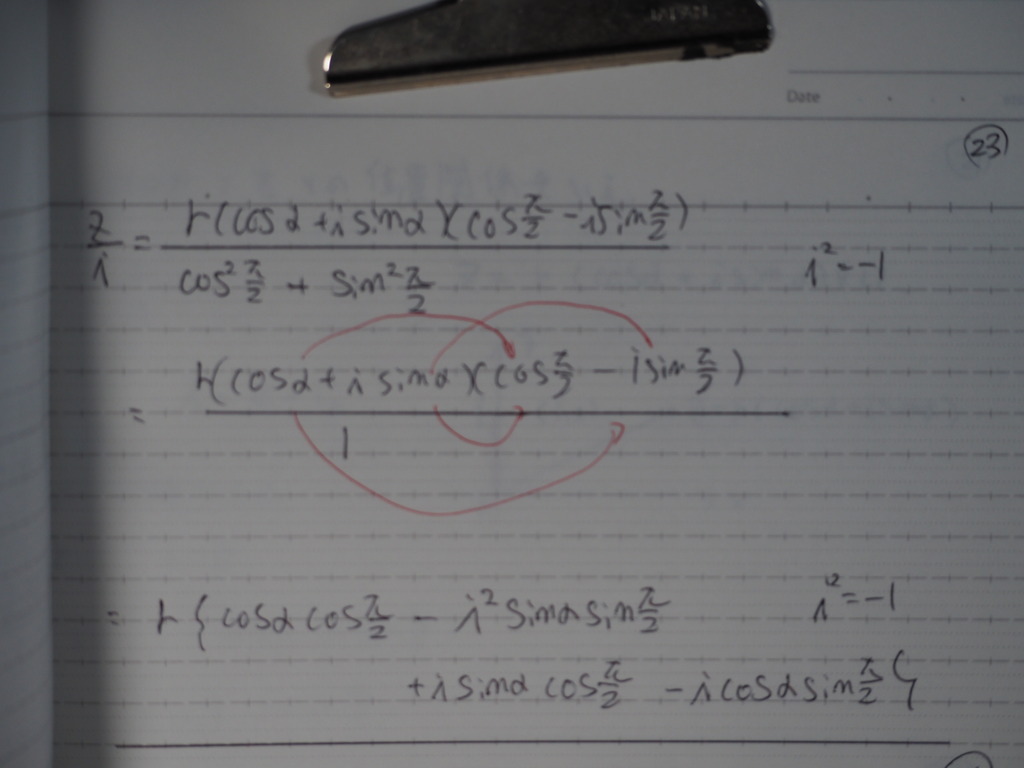 JAPAN
Date
23
z/i = r(cosα + i sinα)(cos π/2 − i sin π/2) / cos² π/2 + sin² π/2
i² = −1
= r(cosα + i sinα)(cos π/2 − i sin π/2) / 1
= r { cosα cos π/2 − i² sinα sin π/2
i² = −1
+ i sinα cos π/2 − i cosα sin π/2 }